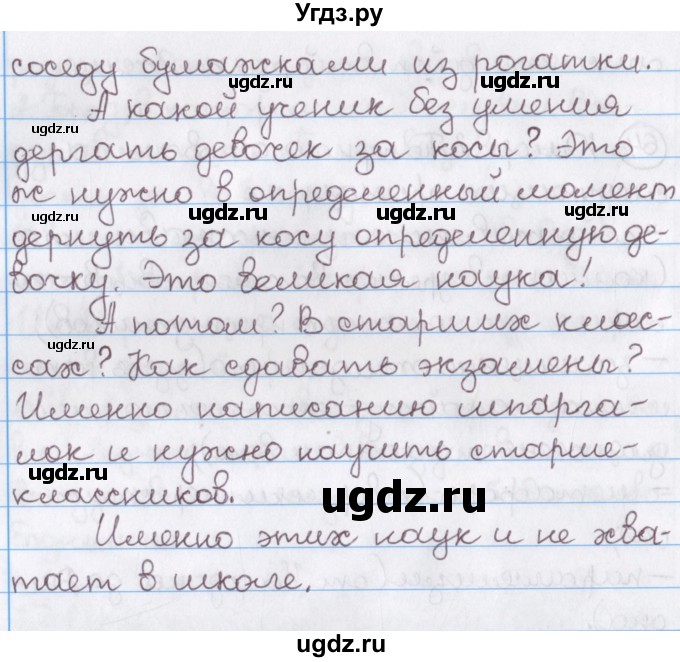 Угдз.ру
соседу бумажками из рогатки.
ugdz.ru ugdz.ru
А какой ученик без умения
ugdz.ru
дергать девочек за косы? Это
ж нужно в определенный момент
ugdz.ru ugdz.ru ugdz.ru ugdz.ru
дернуть за косу определенную де-
вочку. Это великая наука!
ugdz.ru
А потом? В старших клас-
ugdz.ru
сах? Как сдавать экзамены?
Именно написанию шпарга-
лок и нужно научить старше-
ugdz.ru
классников.
ugdz.ru
Именно этих наук и не хва-
тает в школе.
ugdz.ru